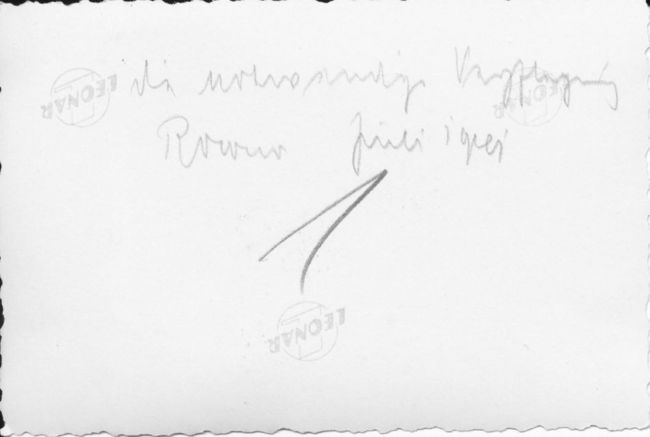 die notwendige Verpflegung
Rowno Juli 1941
1
LEONAR
LEONAR
LEONAR